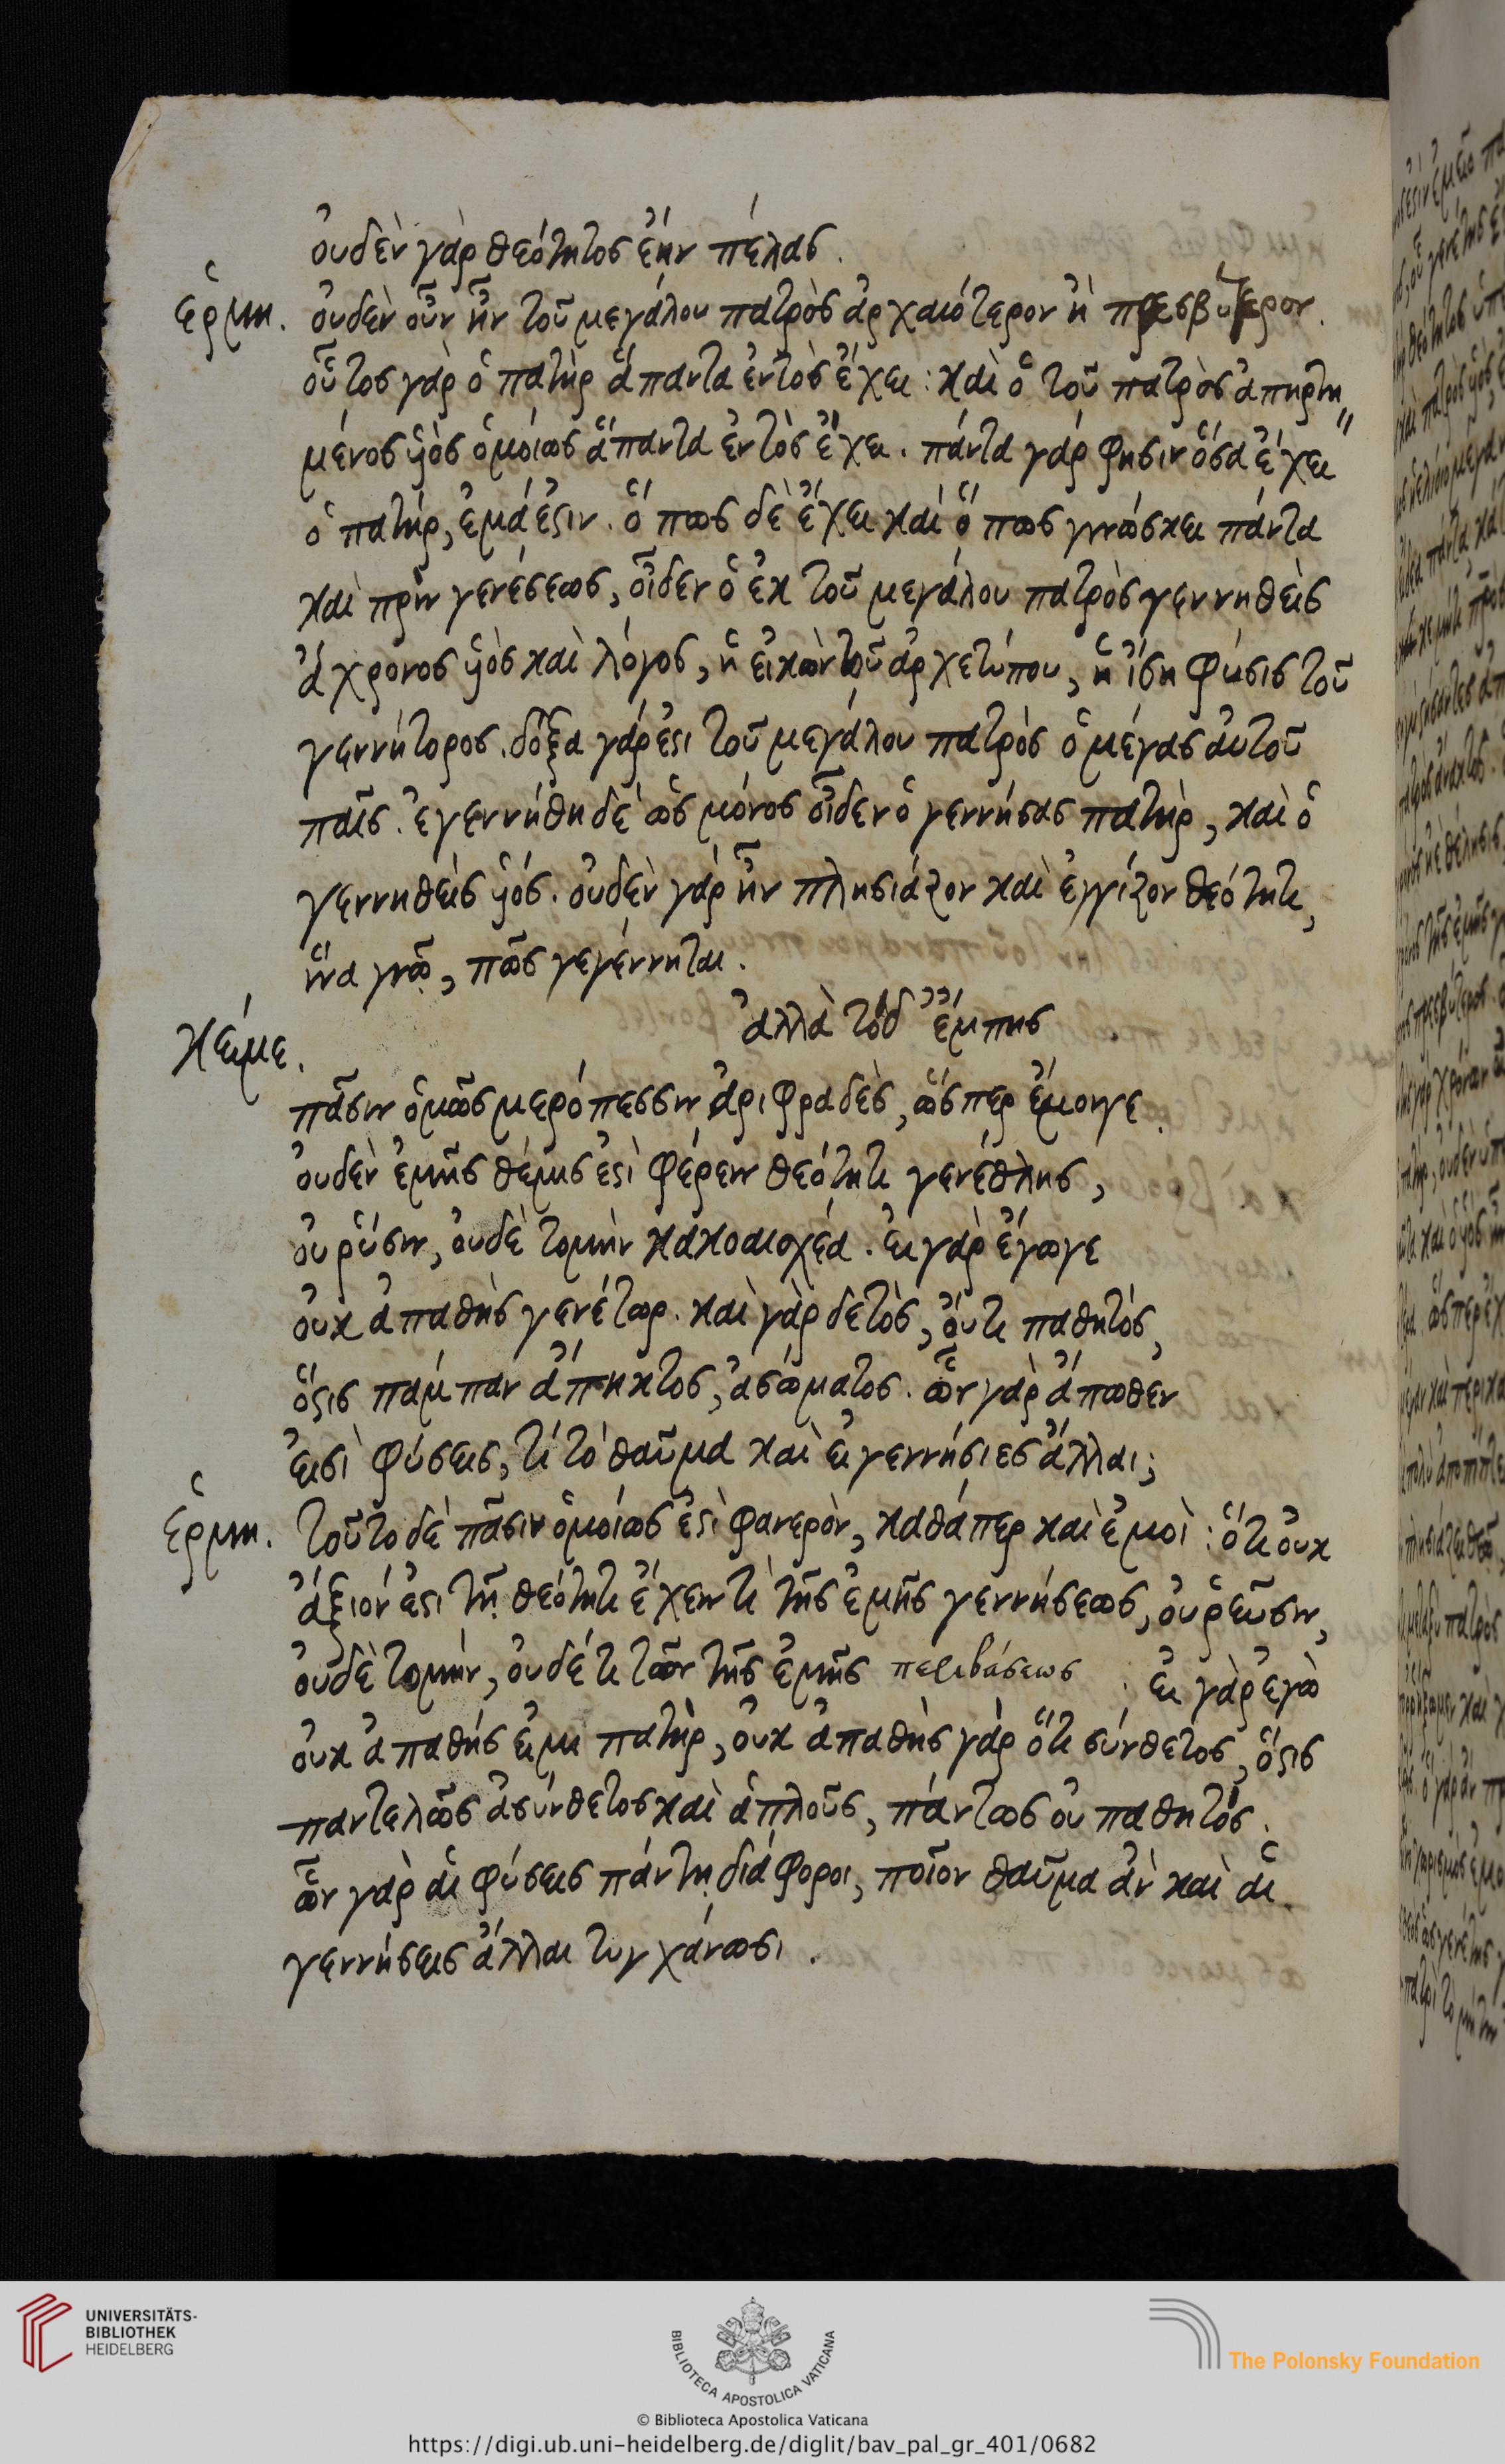 οὐδὲν γὰρ θεότητος ἔην πέλας.
ἑρμη. οὐδὲν οὖν ἦν τοῦ μεγάλου πατρὸς ἀρχαιότερον ἢ πρεσβύτερον.
οὗτος γὰρ ὁ πατὴρ ἅπαντα ἐντὸς ἔχει: καὶ ὁ τοῦ πατρὸς ἀπηρτη
μένος υἱὸς ὁμοίως ἅπαντα ἐντὸς ἔχει. πάντα γάρ φησιν ὅσα ἔχει
ὁ πατήρ, ἐμά ἐστιν. ὅπως δὲ ἔχει καὶ ὅπως γινώσκει πάντα
καὶ πρὶν γενέσεως, οἶδεν ὁ ἐκ τοῦ μεγάλου πατρὸς γεννηθεὶς
ἄχρονος υἱὸς καὶ λόγος, ἡ εἰκὼν τοῦ ἀρχετύπου, ἡ ἴση φύσις τοῦ
γεννήτορος. δόξα γάρ ἐστι τοῦ μεγάλου πατρὸς ὁ μέγας αὐτοῦ
παῖς. ἐγεννήθη δὲ ὡς μόνος οἶδεν ὁ γεννήσας πατὴρ, καὶ ὁ
γεννηθεὶς υἱός. οὐδὲν γὰρ ἦν πλησιάζον καὶ ἐγγίζον θεότητι,
ἵνα γνῷ, πῶς γεγέννηται.
κείμε. ἀλλὰ τόδ' ἔμπης
πᾶσιν ὁμῶς μερόπεσσιν ἀριφραδὲς, ὥσπερ ἔμοιγε.
οὐδὲν ἐμῆς θέμις ἐστὶ φέρειν θεότητι γενέθλης,
οὐ ῥύσιν, οὐδὲ τομὴν κακοαισχέα. εἰ γὰρ ἔγωγε
οὐκ ἀπαθὴς γενέτωρ. καὶ γὰρ δετὸς, οὔτι παθητός,
ὅστις πάμπαν ἄπηκτος, ἀσώματος. ὧν γὰρ ἄπωθεν
εἰσὶ φύσεις, τί τὸ θαῦμα καὶ εἰ γεννήσιες ἄλλαι;
ἑρμη. τοῦτο δὲ πᾶσιν ὁμοίως ἐστὶ φανερὸν, καθάπερ καὶ ἐμοὶ: ὅτι οὐκ
ἄξιόν ἐστι τῇ θεότητι ἔχειν τι τῆς ἐμῆς γεννήσεως, οὐ ῥεῦσιν,
οὐδὲ τομήν, οὐδέ τι τῶν τῆς ἐμῆς περιβάσεως. εἰ γὰρ ἐγὼ
οὐκ ἀπαθής εἰμι πατὴρ, οὐκ ἀπαθὴς γὰρ ὅτι σύνθετος, ὅστις
παντελῶς ἀσύνθετος καὶ ἁπλοῦς, πάντως οὐ παθητός.
ὧν γὰρ αἱ φύσεις πάντῃ διάφοροι, ποῖον θαῦμα ἂν καὶ αἱ
γεννήσεις ἄλλαι τυγχάνωσι.
UNIVERSITÄTS-
BIBLIOTHEK
HEIDELBERG
BIBLIOTECA APOSTOLICA VATICANA
The Polonsky Foundation
© Biblioteca Apostolica Vaticana
https://digi.ub.uni-heidelberg.de/diglit/bav_pal_gr_401/0682